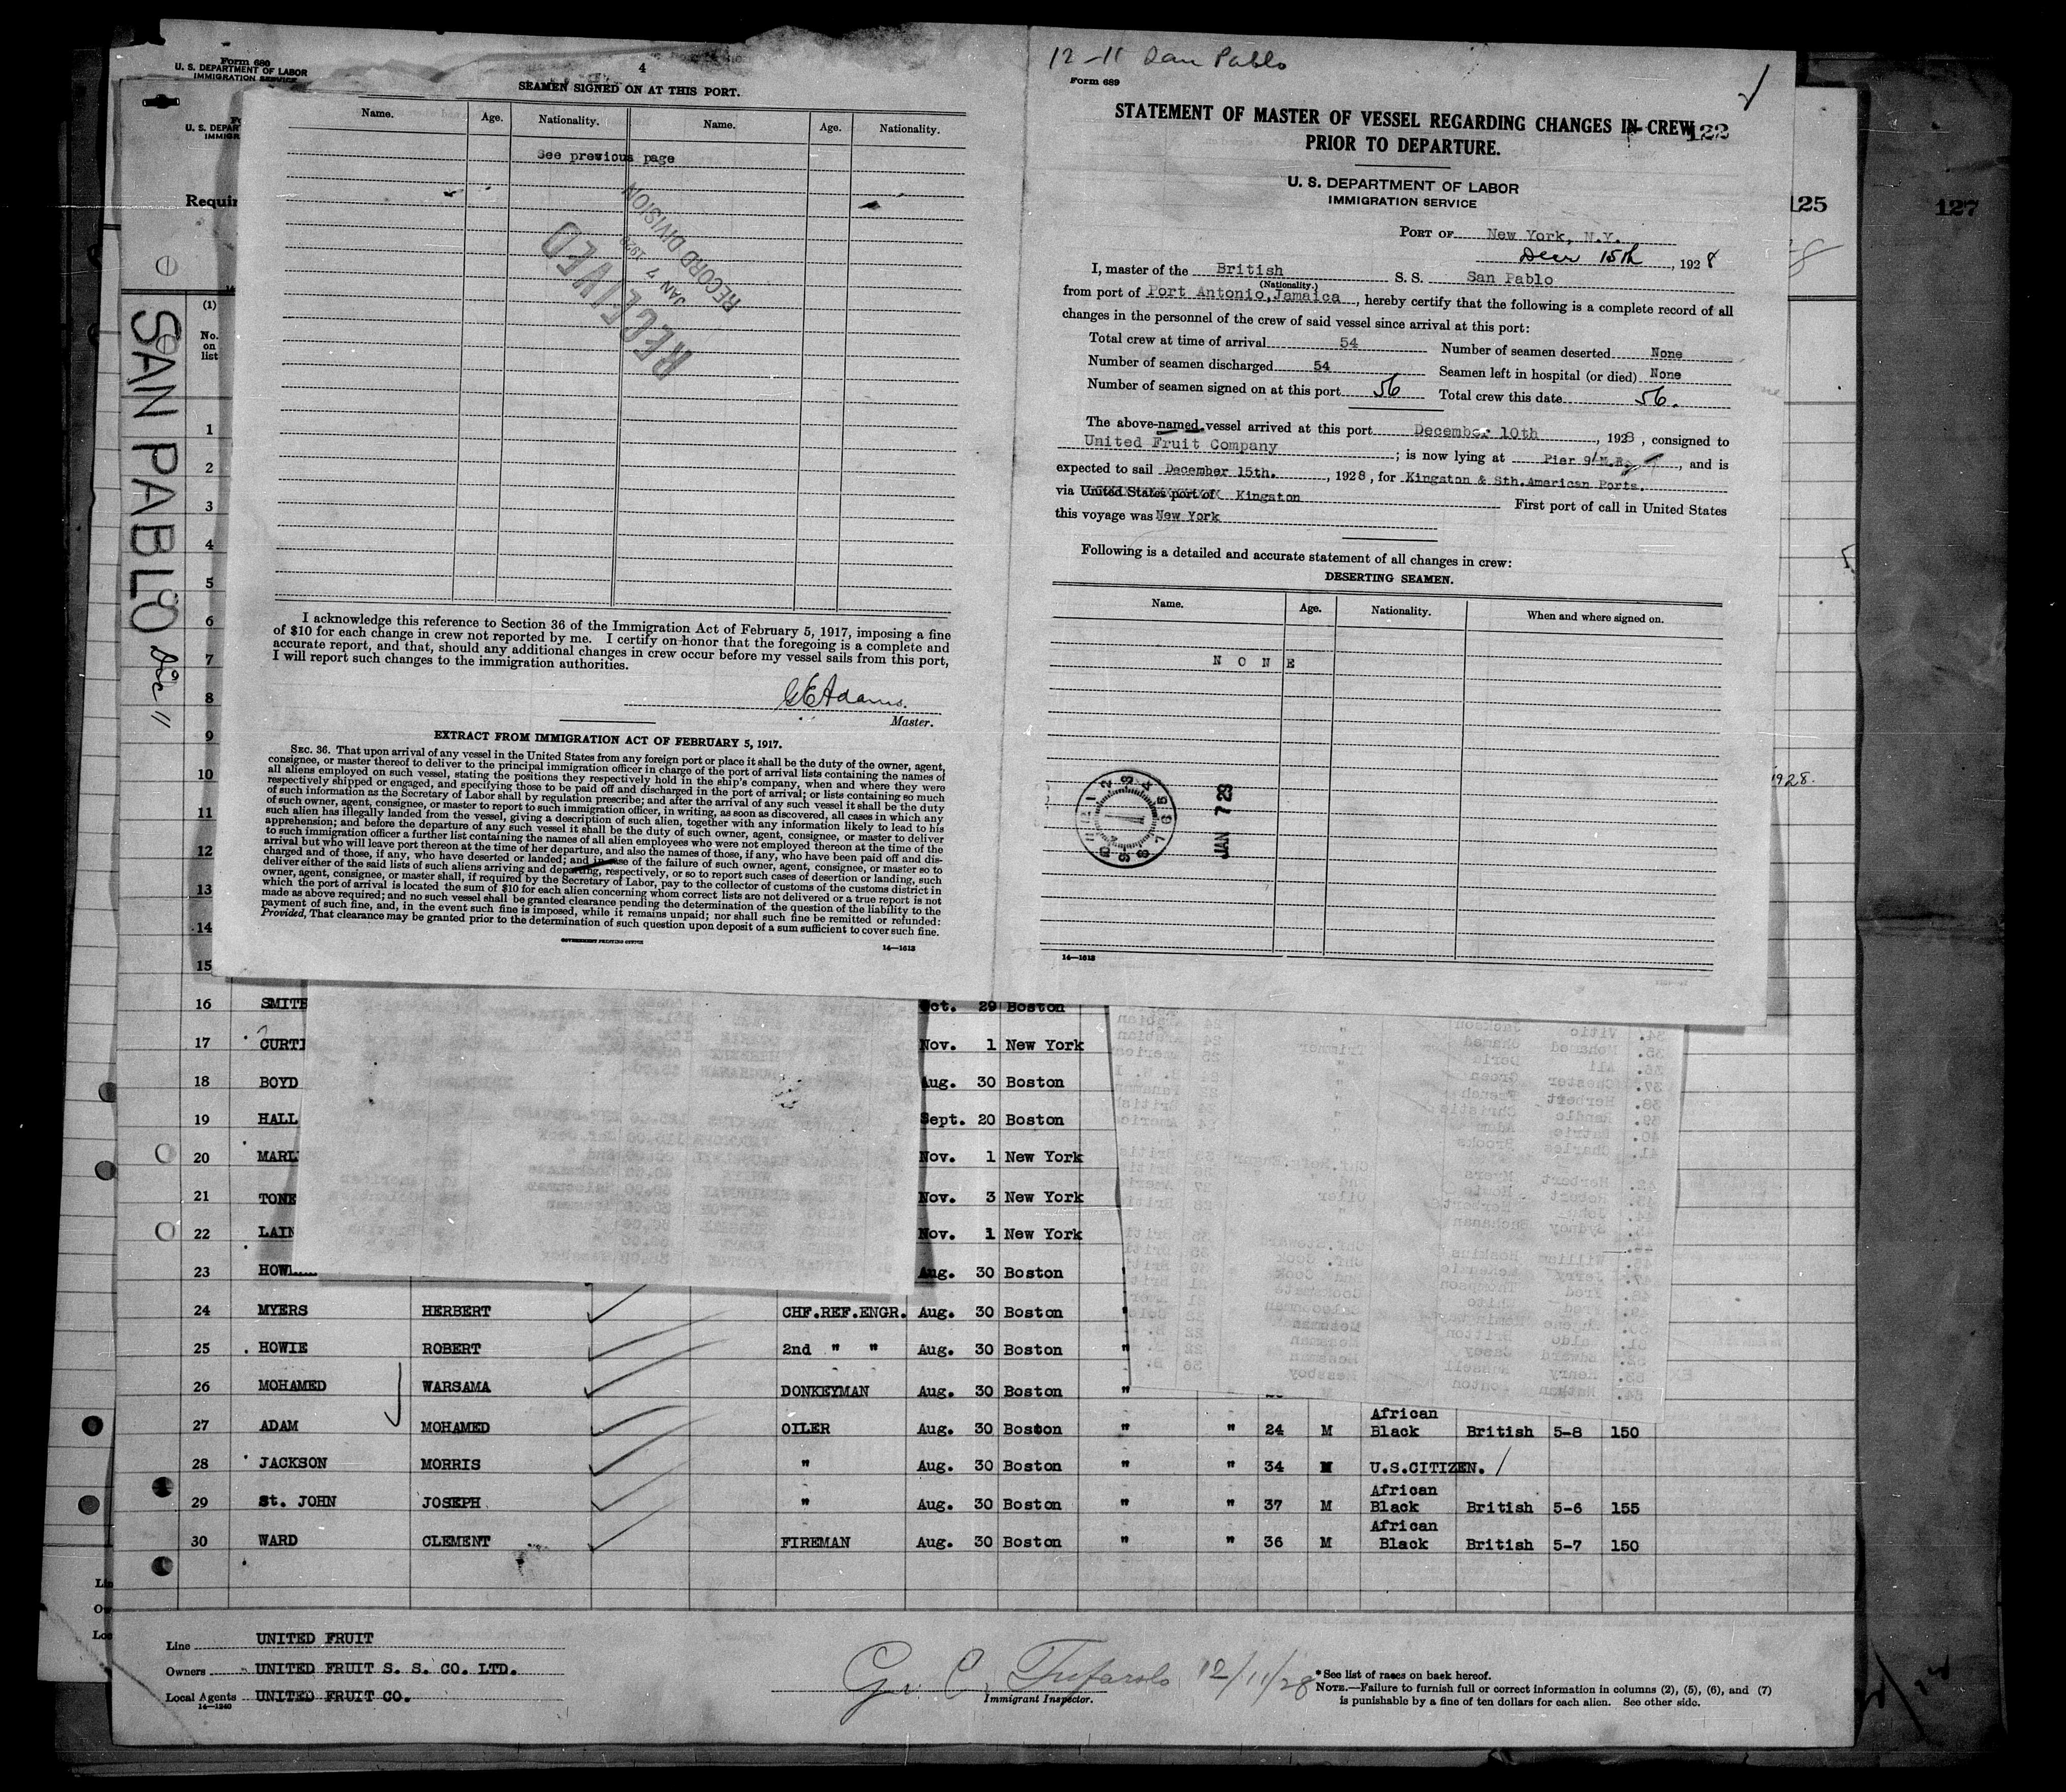 Form 680
U. S. DEPARTMENT OF LABOR
IMMIGRATION SERVICE
U. S. DEPAR
IMMIG
Requir
SAN PABLO Dec 11
4
SEAMEN SIGNED ON AT THIS PORT.
Name. Age. Nationality. Name. Age. Nationality.
See previous page
RECEIVED
JAN 7 1929
RECORD DIVISION
I acknowledge this reference to Section 36 of the Immigration Act of February 5, 1917, imposing a fine
of $10 for each change in crew not reported by me. I certify on honor that the foregoing is a complete and
accurate report, and that, should any additional changes in crew occur before my vessel sails from this port,
I will report such changes to the immigration authorities.
G E Adams.
Master.
EXTRACT FROM IMMIGRATION ACT OF FEBRUARY 5, 1917.
SEC. 36. That upon arrival of any vessel in the United States from any foreign port or place it shall be the duty of the owner, agent,
consignee, or master thereof to deliver to the principal immigration officer in charge of the port of arrival lists containing the names of
all aliens employed on such vessel, stating the positions they respectively hold in the ship's company, when and where they were
respectively shipped or engaged, and specifying those to be paid off and discharged in the port of arrival; or lists containing so much
of such information as the Secretary of Labor shall by regulation prescribe; and after the arrival of any such vessel it shall be the duty
of such owner, agent, consignee, or master to report to such immigration officer, in writing, as soon as discovered, all cases in which any
such alien has illegally landed from the vessel, giving a description of such alien, together with any information likely to lead to his
apprehension; and before the departure of any such vessel it shall be the duty of such owner, agent, consignee, or master to deliver
to such immigration officer a further list containing the names of all alien employees who were not employed thereon at the time of the
arrival but who will leave port thereon at the time of her departure, and also the names of those, if any, who have been paid off and dis-
charged and of those, if any, who have deserted or landed; and in case of the failure of such owner, agent, consignee, or master so to
deliver either of the said lists of such aliens arriving and departing, respectively, or so to report such cases of desertion or landing, such
owner, agent, consignee, or master shall, if required by the Secretary of Labor, pay to the collector of customs of the customs district in
which the port of arrival is located the sum of $10 for each alien concerning whom correct lists are not delivered or a true report is not
made as above required; and no such vessel shall be granted clearance pending the determination of the question of the liability to the
payment of such fine, and, in the event such fine is imposed, while it remains unpaid; nor shall such fine be remitted or refunded:
Provided, That clearance may be granted prior to the determination of such question upon deposit of a sum sufficient to cover such fine.
GOVERNMENT PRINTING OFFICE
14—1613
12-11 San Pablo
Form 689
STATEMENT OF MASTER OF VESSEL REGARDING CHANGES IN CREW
PRIOR TO DEPARTURE.
122
U. S. DEPARTMENT OF LABOR
IMMIGRATION SERVICE
PORT OF New York, N.Y.
Decr 15th, 1928
I, master of the British S. S. San Pablo
(Nationality.)
from port of Port Antonio, Jamaica, hereby certify that the following is a complete record of all
changes in the personnel of the crew of said vessel since arrival at this port:
Total crew at time of arrival 54 Number of seamen deserted None
Number of seamen discharged 54 Seamen left in hospital (or died) None
Number of seamen signed on at this port 56 Total crew this date 56.
The above-named vessel arrived at this port December 10th, 1928, consigned to
United Fruit Company; is now lying at Pier 9 N.R., and is
expected to sail December 15th., 1928, for Kingston & Sth.American Ports.
via United States port of Kingston First port of call in United States
this voyage was New York
Following is a detailed and accurate statement of all changes in crew:
DESERTING SEAMEN.
Name. Age. Nationality. When and where signed on.
N O N E
JAN 7 29
14—1613
125
127
1928.
(1)
No.
on
list
1
2
3
4
5
6
7
8
9
10
11
12
13
14
15
16 SMITH Oct. 29 Boston
17 CURTI Nov. 1 New York
18 BOYD Aug. 30 Boston
19 HALL Sept. 20 Boston
20 MARL Nov. 1 New York
21 TONE Nov. 3 New York
22 LAIN Nov. 1 New York
23 HOW Aug. 30 Boston
24 MYERS HERBERT CHF.REF.ENGR. Aug. 30 Boston
25 HOWIE ROBERT 2nd " " Aug. 30 Boston "
26 MOHAMED WARSAMA DONKEYMAN Aug. 30 Boston "
27 ADAM MOHAMED OILER Aug. 30 Boston " " 24 M African Black British 5-8 150
28 JACKSON MORRIS " Aug. 30 Boston " " 34 M U.S.CITIZEN.
29 St. JOHN JOSEPH " Aug. 30 Boston " " 37 M African Black British 5-6 155
30 WARD CLEMENT FIREMAN Aug. 30 Boston " " 36 M African Black British 5-7 150
Line UNITED FRUIT
Owners UNITED FRUIT S. S. CO. LTD.
Local Agents UNITED FRUIT CO.
14—1240
12/11/28
Immigrant Inspector.
*See list of races on back hereof.
NOTE.—Failure to furnish full or correct information in columns (2), (5), (6), and (7)
is punishable by a fine of ten dollars for each alien. See other side.